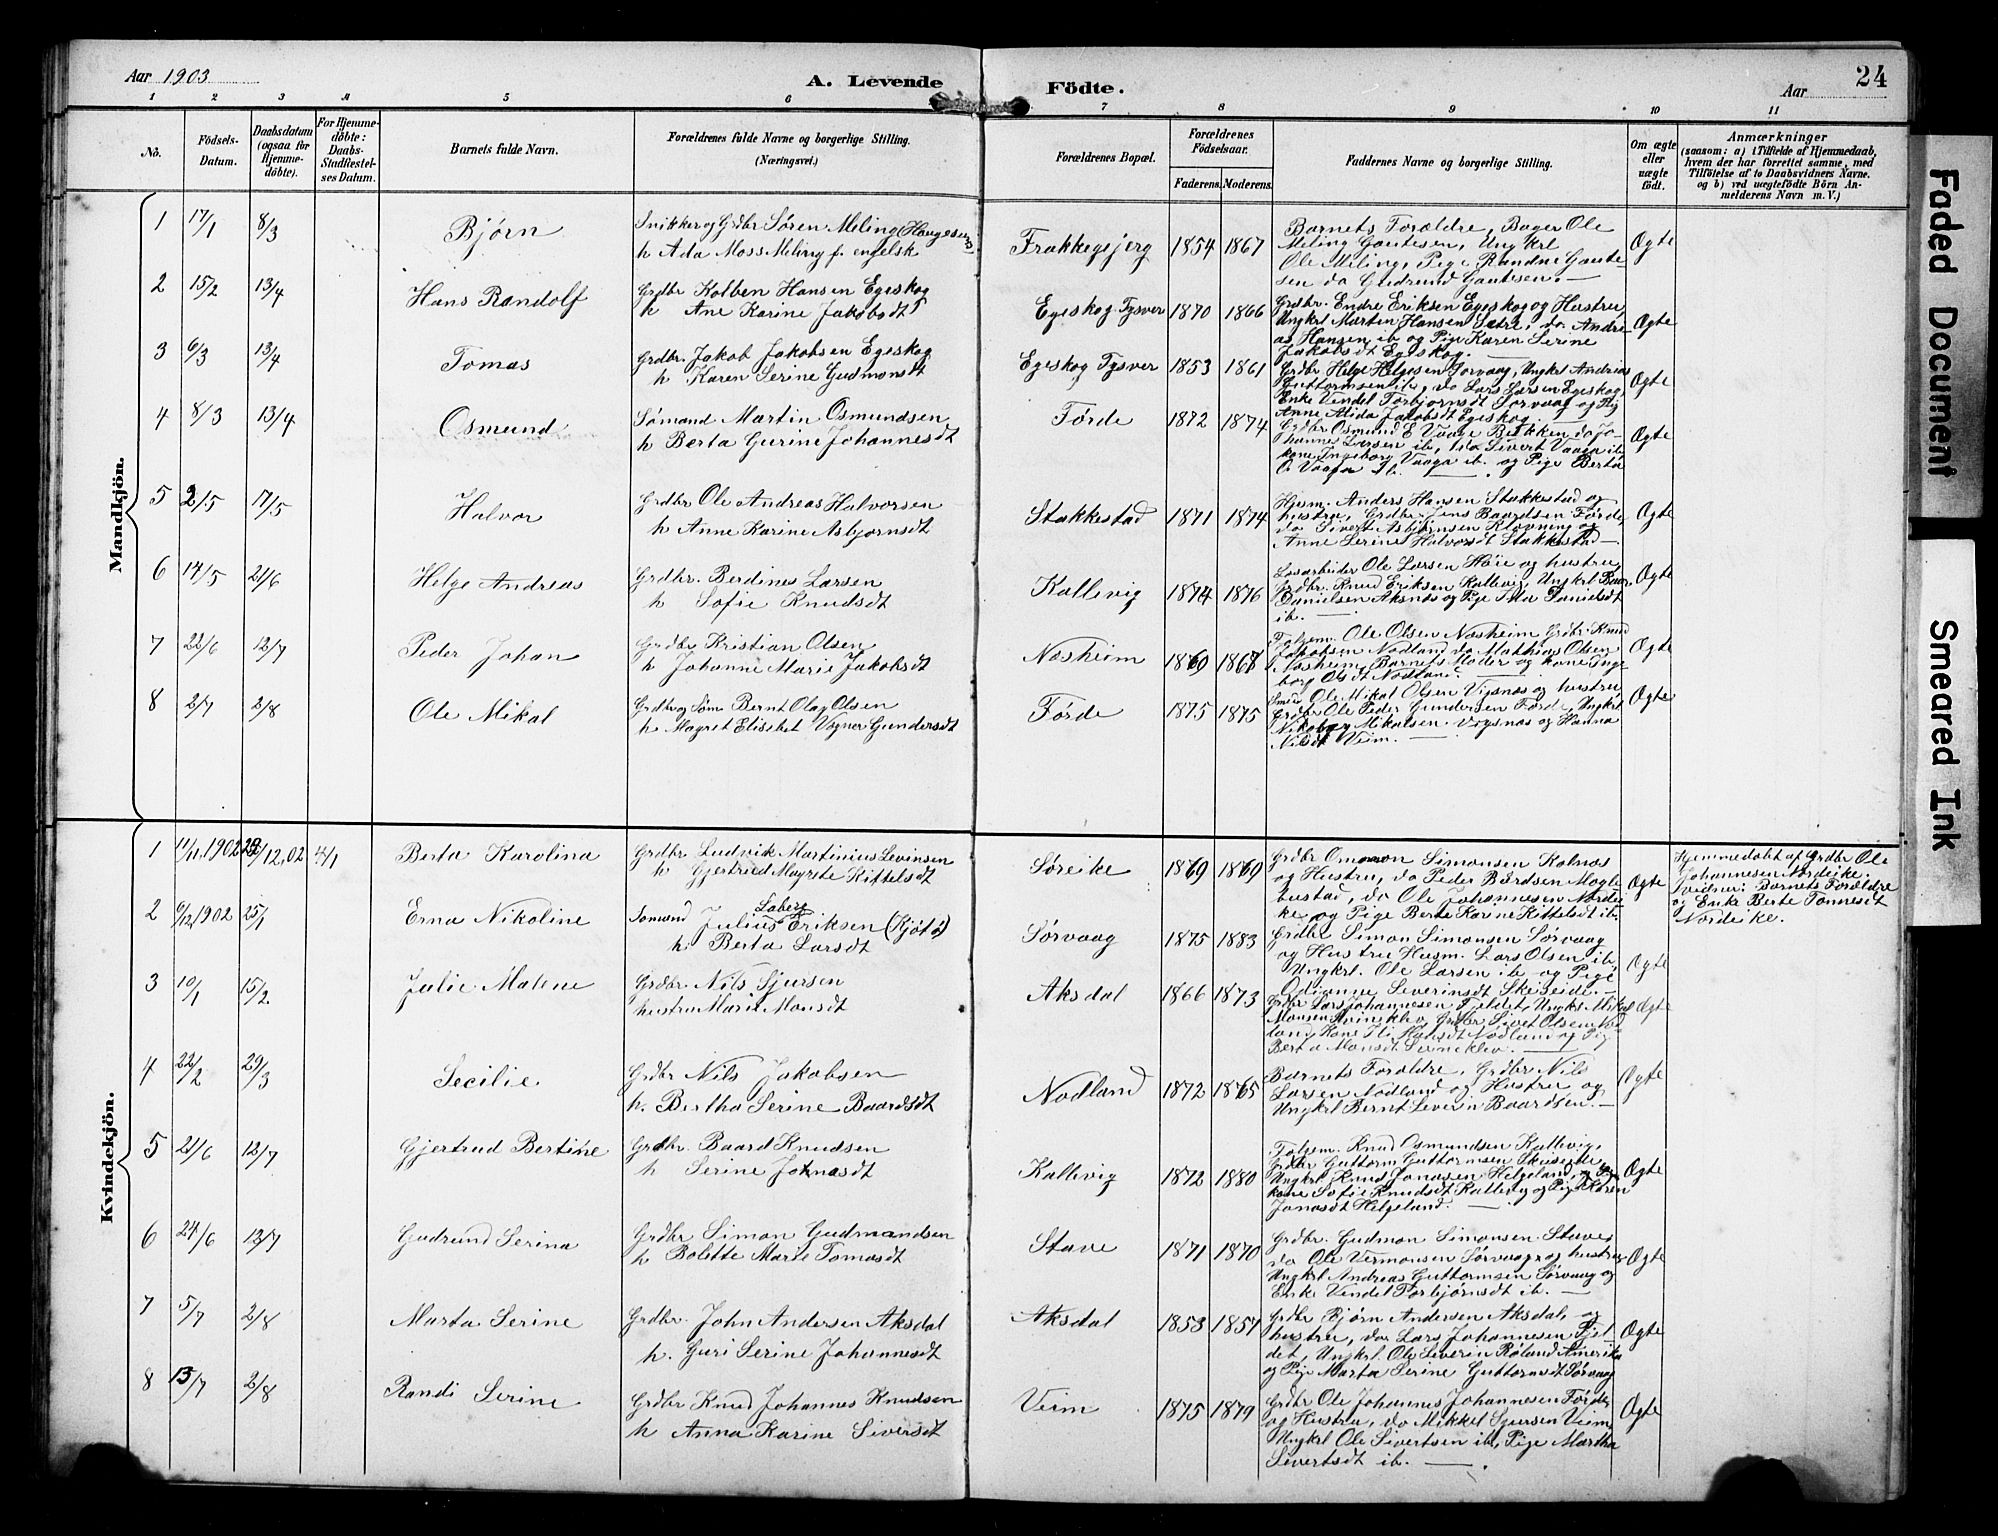 Aar 1903
A. Levende
Födte.
Aar
24
1 2 3 4 5 6 7 8 9 10 11
No.
Födsels-Datum.
Daabsdatum (ogsaa for Hjemme-döbte).
For Hjemme-döbte: Daabs-Stadfæstel-ses Datum.
Barnets fulde Navn.
Forældrenes fulde Navne og borgerlige Stilling. (Næringsvei.)
Forældrenes Bopæl.
Forældrenes Födselsaar.
Faderens. Moderens.
Faddernes Navne og borgerlige Stilling.
Om ægte eller uægte födt.
Anmærkninger
(saasom: a) i Tilfælde af Hjemmedaab, hvem der har forrettet samme, med Tilföielse af to Daabsvidners Navne. og b) ved uægtefödte Börn An-melderens Navn m. V.)
Mandkjön.
1 17/1 8/3 Bjørn
Snikker og Grdbr Søren Meling (Haugesund)
h Ada Moss Meling f. engelsk
Frakkegjerg 1854 1867
Barnets Forældre, Bager Ole
Meling Gautesen, Ungkrl
Ole Meling, Pige Randne Gaute-
sen do Gudrund Gautesen. —
Ægte
2 15/2 13/4 Hans Randolf
Grdbr Kolben Hansen Egeskog
h Ane Karine Jakobsdt
Egeskog Tysver 1870 1866
Grdbr. Endre Eriksen Egeskog og Hustru
Ungkrl Marten Hansen Sætre, do. Andre-
as Hansen ib og Pige Karen Serine
Jakobsdt Egeskog. —
Ægte
3 6/3 13/4 Tomas
Grdbr. Jakob Jakobsen Egeskog
h Karen Serine Gudmonsdt
Egeskog Tysver 1853 1861
Grdbr Helge Helgesen Sorvaag, Ungkrl Andreas
Guttormsen ib, do Lars Larsen Egeskog
Enke Vendel Torbjornsdt Sorvaag og Pig
Anne Alida Jakobsdt Egeskog —
Ægte
4 8/3 13/4 Osmund
Sømand Martin Osmundsen
h Berta Gurine Johannesdt
Førde 1872 1874
Grdbr Osmund E Vaage Bokken do Jo-
hannes Larsen ib, do Sivert Vaaga ib
kone Ingeborg Vaaga ib. og Pige Berta
O. Vaaga ib. —
Ægte
5 2/5 17/5 Halvor
Grdbr Ole Andreas Halvorsen
h Anne Karine Asbjornsdt
Stakkestad 1871 1874
Husm. Anders Hansen Stakkestad og
hustru, Grdbr Jens Baardsen Førde,
do Sivert Asbjørnsen Klovning og
Anne Serine Halvorsdt Stakkestad —
Ægte
6 14/5 21/6 Helge Andreas
Grdbr. Berdines Larsen
h Sofie Knudsdt
Kallevig 1874 1876
Løsarbeider Ole Larsen Høie og hustru
Grdbr. Knud Eriksen Kallevig, Ungkrl Baar
Danielsen Aksnæs og Pige Ida Danielsdt
ib. —
Ægte
7 22/6 12/7 Peder Johan
Grdbr Kristian Olsen
h Johanne Marie Jakobsdt
Næsheim 1869 1867
Folgem. Ole Olsen Næsheim Grdbr Knud
Jakobsen Nodland do Mathias Olsen
Næsheim, Barnets Moder og kone Inge-
borg Olsdt Nodland. —
Ægte
8 2/7 2/8 Ole Mikal
Grdbr og Søm Bernt Olaf Olsen
h Magret Elisebet Vogner Gundersdt
Førde 1875 1875
Smed Ole Mikal Olsen Vigsnæs og hustru
Grdbr Ole Peder Gundersen Førde, Ungkrl
Nikolay Mikalsen Vigsnæs og Hanna
Nilsdt Veim. —
Ægte
Kvindekjön.
1 11/11 1902 28/12.02 4/1 Berta Karolina
Grdbr Ludvik Martinius Levinsen
h Gjertrud Magrete Kittelsdt
Søreike 1869 1869
Grdbr Ommon Simonsen Kolnæs
og Hustru, do Peder Bårdsen Mogle-
bustad, do Ole Johannesen Nordei-
ke og Pige Berte Karine Kittelsdt ib
Ægte
Hjemmedøbt af Grdbr Ole
Johannesen Nordeike.
vidner: Barnets Forældre
og Enke Berte Tonnesdt
Nordeike.
2 6/12 1902 25/1 Erna Nikoline
Somand Julius Laberg Eriksen (Kjøtø)
h. Berta Larsdt
Sørvaag 1875 1883
Grdbr Simon Simonsen Sørvaag
og Hustru Husm. Lars Olsen ib,
Ungkrl. Ole Larsen ib og Pige
Odianne Severinsdt Skeiseide. —
Ægte
3 10/1 15/2 Julie Malene
Grdbr. Nils Sjursen
hustru Marie Monsdt
Aksdal 1866 1873
Grdbr Lars Johannesen Fjeldet, Ungkrl Mikal
Monsen Svineklev Grdbr Sivet Olsen Nod-
land, Kone Ili Hansdt Nodland og Pig
Berta Monsdt Svineklev. —
Ægte
4 22/2 29/3 Secilie
Grdbr Nils Jakobsen
h. Bertha Serine Baardsdt
Nodland 1872 1865
Barnets Forældre, Grdbr Nils
Larsen Nodland og Hustru og
Ungkrl Bernt Severin Baardsen. —
Ægte
5 21/6 12/7 Gjertrud Bertine
Grdbr. Baard Knudsen
h Serine Johnasdt
Kallevig 1872 1880
Folgem. Knud Osmundsen Kallevig,
Grdbr Guttorm Guttormsen Skeiseide
Ungkrl Knud Jonassen Helgeland,
kone Sofie Knudsdt Kallevig og Pige Karen
Jonasdt Helgeland. —
Ægte
6 24/6 12/7 Gudrund Serina
Grdbr Simon Gudmandsen
h Bolette Marie Tomasdt
Stave 1871 1870
Grdbr. Gudmon Simonsen Stave,
do Ole Vermonsen Sørvaag og hustru
Ungkrl Andreas Guttormsen Sørvaag og
Enke Vendel Torbjørnsdt ib. —
Ægte
7 5/7 2/8 Marta Serine
Grdbr. John Andersen Aksdal
h. Guri Serine Johannesdt
Aksdal 1853 1857
Grdbr Bjørn Andersen Aksdal og
hustru, do Lars Johannesen Fjel-
det, Ungkrl. Ole Severin Røland Amerika
og Pige Marta Serine Guttormsdt Sørvaag
Ægte
8 13/7 2/8 Randi Serine
Grdbr Knud Johannes Knudsen
h Anna Karine Siversdt
Veim 1875 1879
Grdbr Ole Johannes Johannesen Førde
og Hustru, do Mikkel Sjursen Veim,
Ungkrl Ole Sivertsen ib, Pige Martha
Sivertsdt ib. —
Ægte
Faded Document
Smeared Ink